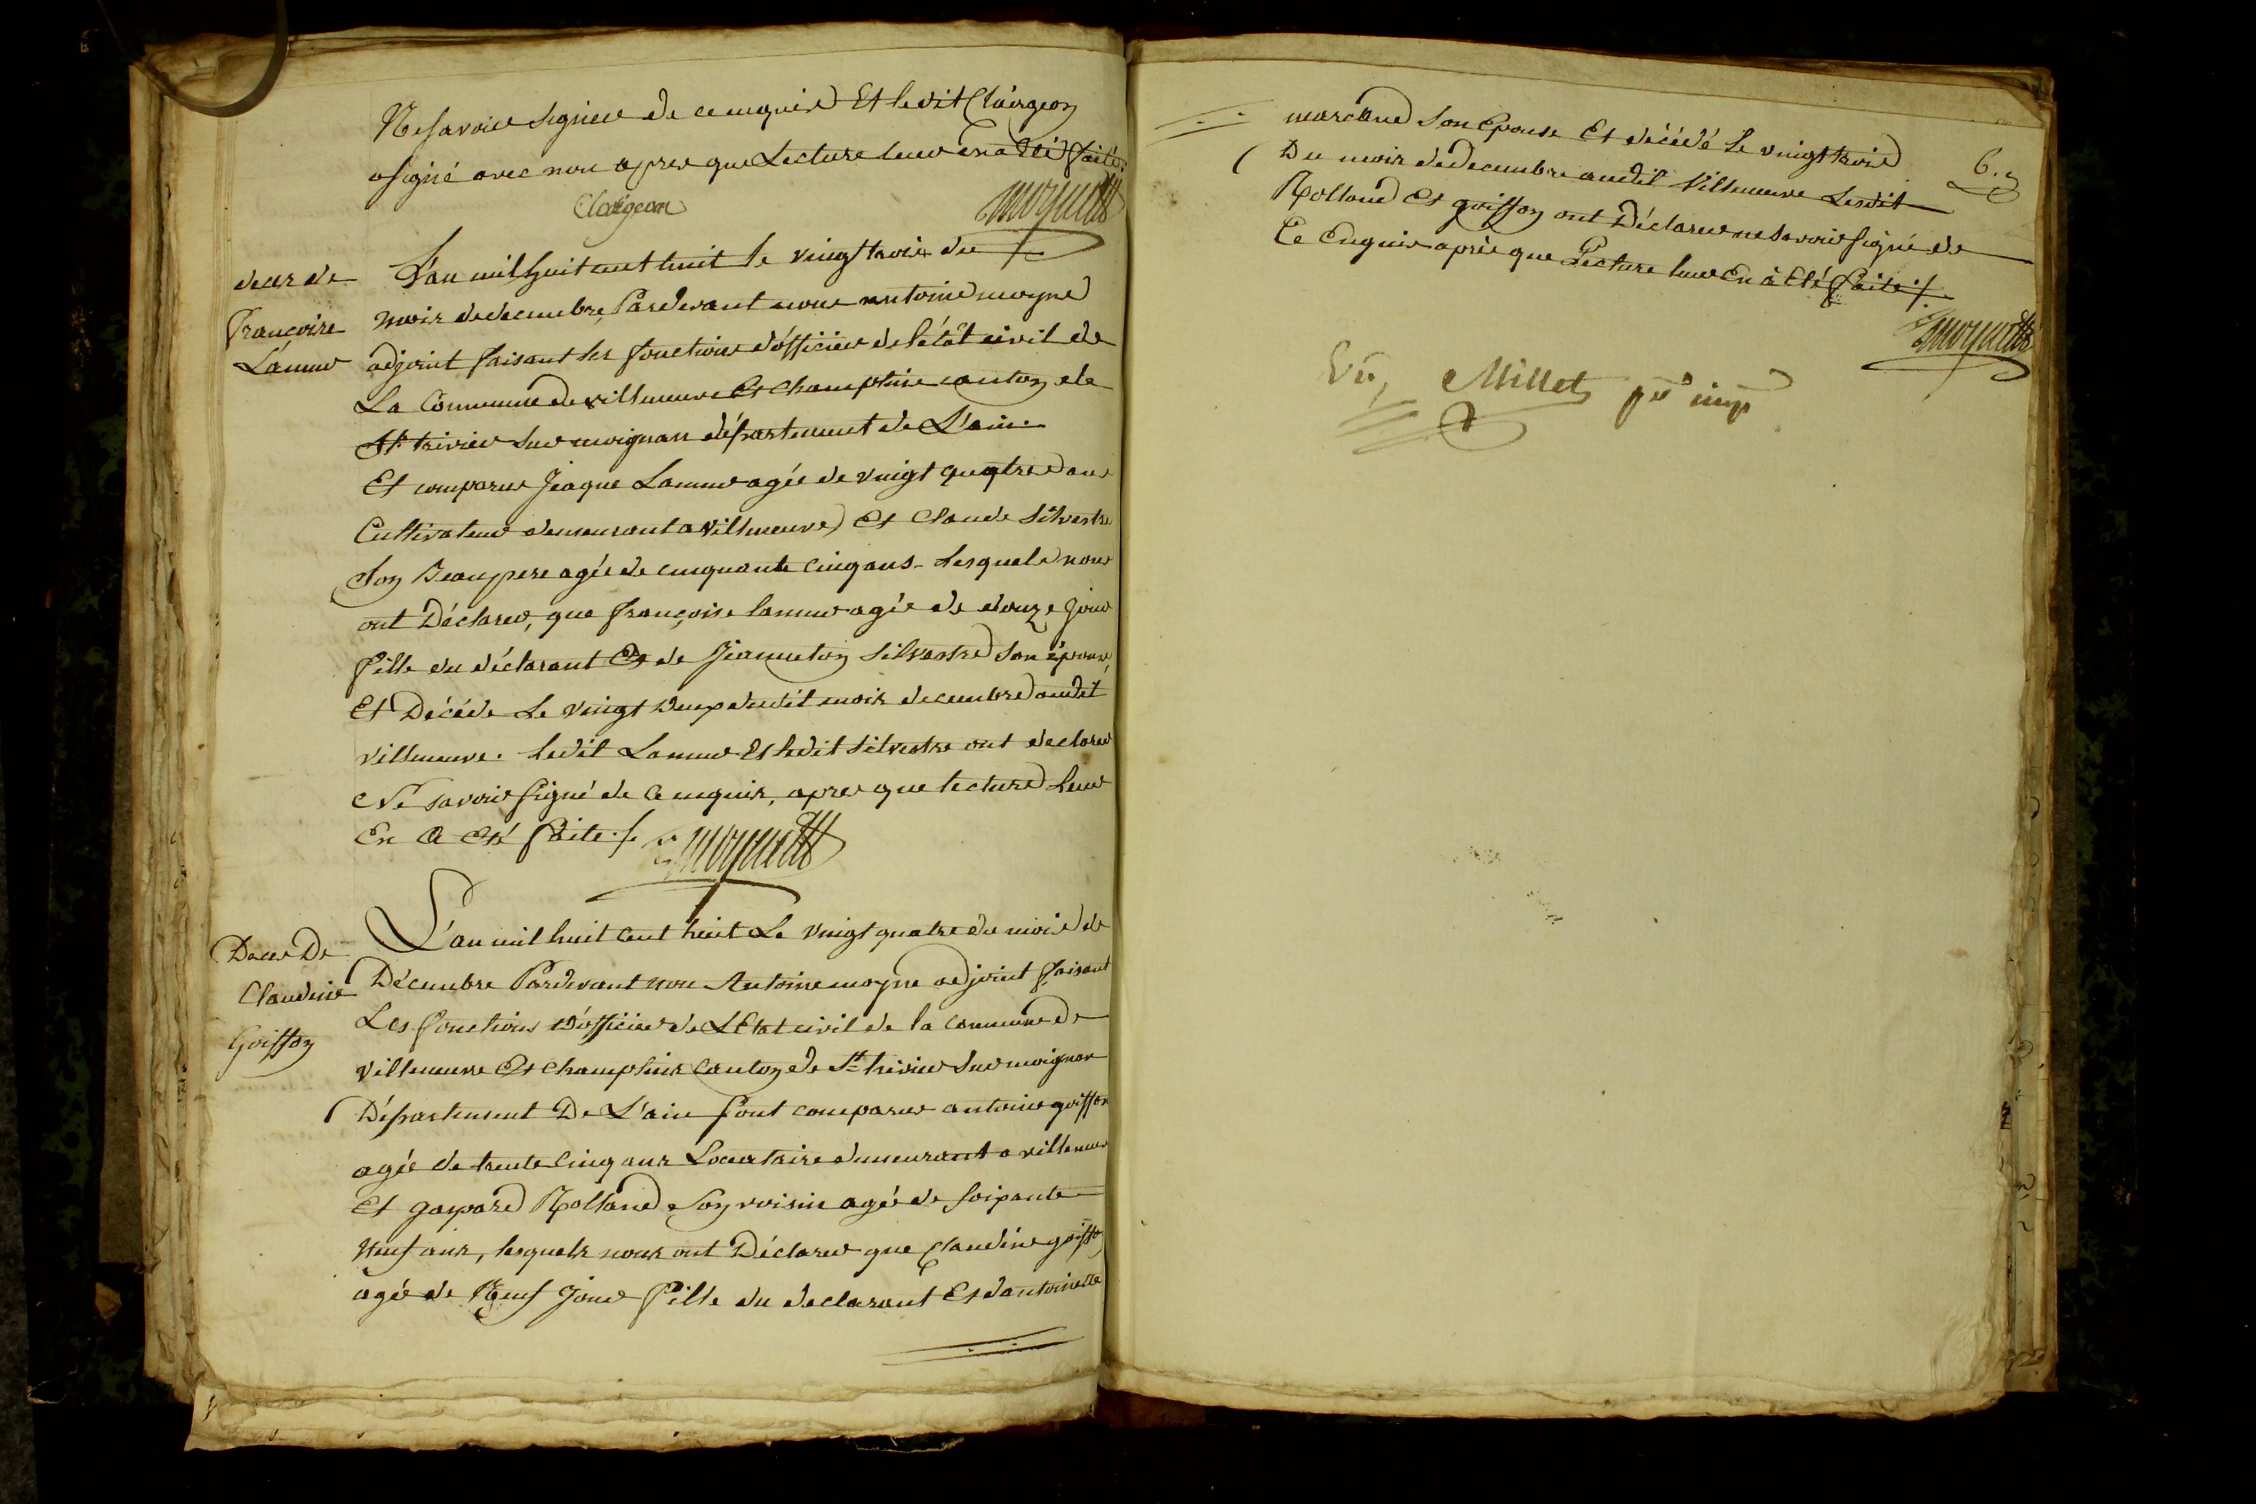 Ne savoir signer de ce enquis Et ledit Clairgeon
a signé avec nou apres que Lecture leur en a été faite
Clairgeon
moyne
deces de
françoise
Lamur
L'an mil huit cent huit le vingt trois du
mois de decembre, Pardevant nous antoine moyne
adjoint faisant les fonctions d'officier de l'état civil de
La Commune de villeneuve Et Champtein canton de
St. trivier sur moignan département de L'ain.
Et comparu Jeaque Lamur agée de vingt quatre ans
Cultivateur demeurant a villeneuve Et Claude Silvestre
son Beaupere agée de cinquante cinq ans - Lesquels nous
ont Déclarer, que françoise lamur agée de douze jour
fille du déclarant Et de Jeanneton Silvestre son épouse,
Et Décéde Le vingt deux dudit mois decembre audit
villeneuve. Ledit Lamur Et ledit Silvestre ont declarer
Ne savoir signé de ce enquis, apres que lecture leur
En a Eté faite ./.
moyne
Deces De
Claudine
Goiffon
L'an mil huit cent huit Le vingt quatre du mois de
Décembre Pardevant nou Antoine moyne adjoint faisant
Les fonctions d'officier de L'Etat civil de la commune de
villeneuve Et Champtein Canton de St trivier sur moignan
Département De L'ain sont comparu antoine goiffon
agée de trente cinq ans Locataire demeurant a villeneuve
Et gaspard Rolland son voisin agée de soixante
Neuf ans, lesquels nous ont Déclarer que Claudine goiffon
agée de Neuf Jour fille du declarant Et d'antoinette
6.
marcand son Epouse Et décédé Le vingt trois
Du mois de decembre audit villeneuve Lesdit
Rolland Et goiffon ont Déclarer ne savoir signé de
Ce Enquis après que Lecture leur En à Eté faite ./.
moyne
Vu, Millet